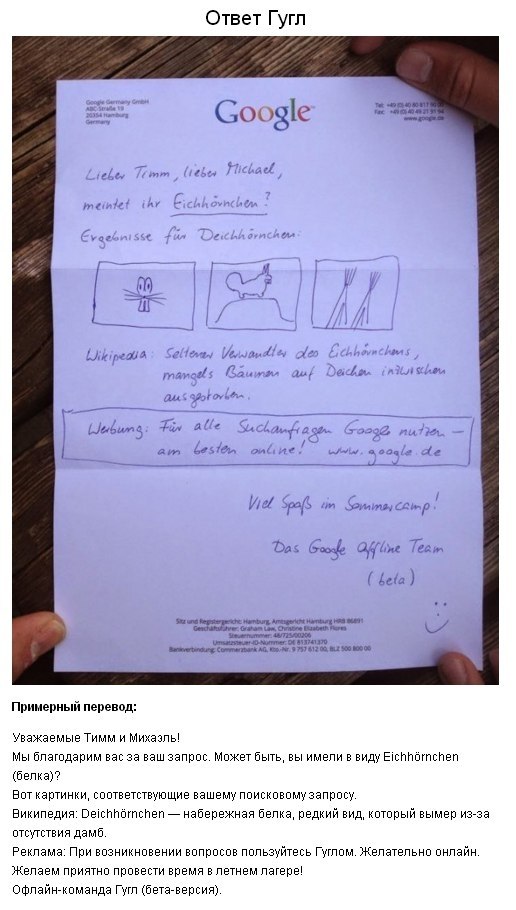 Ответ Гугл
Google Germany GmbH
ABC-Straße 19
20354 Hamburg
Germany
Google
Tel: +49 (0) 40 80 817 90 00
Fax: +49 (0) 40 49 21 91 94
www.google.de
Lieber Timm, lieber Michael,
meintet ihr Eichhörnchen?
Ergebnisse für Deichhörnchen:
Wikipedia: Seltener Verwandter des Eichhörnchens,
mangels Bäumen auf Deichen inzwischen
ausgestorben.
Werbung: Für alle Suchanfragen Google nutzen –
am besten online! www.google.de
Viel Spaß im Sommercamp!
Das Google Offline Team
(beta)
Sitz und Registergericht: Hamburg, Amtsgericht Hamburg HRB 86891
Geschäftsführer: Graham Law, Christine Elizabeth Flores
Steuernummer: 48/725/00206
Umsatzsteuer-ID-Nummer: DE 813741370
Bankverbindung: Commerzbank AG, Kto.-Nr. 9 757 612 00, BLZ 500 800 00
Примерный перевод:
Уважаемые Тимм и Михаэль!
Мы благодарим вас за ваш запрос. Может быть, вы имели в виду Eichhörnchen
(белка)?
Вот картинки, соответствующие вашему поисковому запросу.
Википедия: Deichhörnchen — набережная белка, редкий вид, который вымер из-за
отсутствия дамб.
Реклама: При возникновении вопросов пользуйтесь Гуглом. Желательно онлайн.
Желаем приятно провести время в летнем лагере!
Офлайн-команда Гугл (бета-версия).